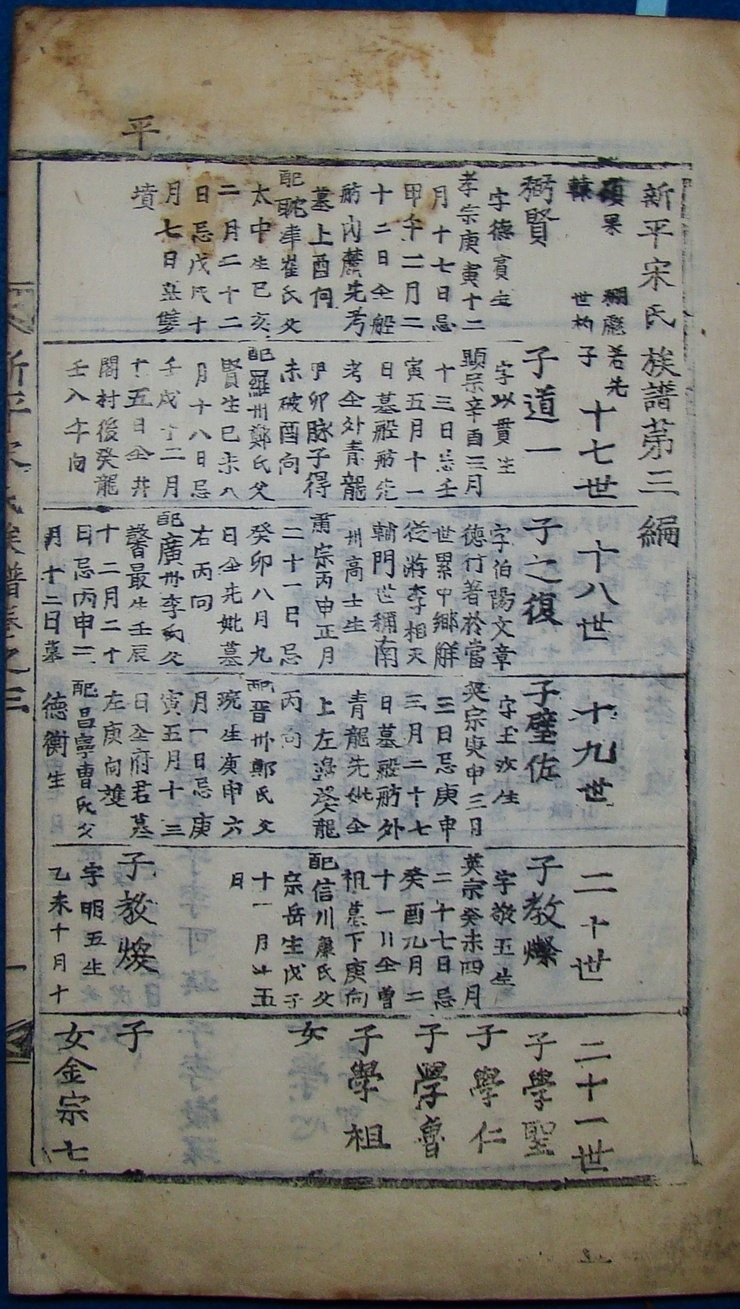 平
新平宋氏族譜苐三編
碩果
棘
弼賢
字德賓生
孝宗庚寅十二
月十七日忌
甲午二月二
十二日仝般
舫內麓先考
墓上酉向
配耽津崔氏父
太中生己亥
二月二十二
日忌戊戌十
月七日墓雙
墳
若先
子
十七世
子道一
字以貫生
顯宗辛酉三月
十三日忌壬
寅五月十一
日墓般舫先
考仝外青龍
甲卯脉子得
未破酉向
配羅州鄭氏父
賢生己未八
月十八日忌
壬戌十二月
十五日仝井
閣村後癸龍
壬入午向
十八世
子之復
字伯陽文章
德行著於當
世累中鄉解
從游李相天
輔門世稱南
州高士生
肅宗丙申正月
二十一日忌
癸卯八月九
日仝先妣墓
右丙向
配廣州李氏父
馨最生壬辰
十二月二十
日忌丙申二
月十二日墓
十九世
子璧佐
字玉汝生
英宗庚申三日
三日忌庚申
三月二十七
日墓般舫外
青龍先妣仝
上左邊癸龍
丙向
配晋州鄭氏父
琬生庚申六
月一日忌庚
寅五月十三
日仝府君墓
左庚向雙
配昌寧曺氏父
德衡生
二十世
子教燦
字敬五生
英宗癸未四月
二十七日忌
癸酉九月二
十一日仝曾
祖墓下庚向
配信川康氏父
宗岳生戊子
十一月廿五
日
子教煥
字明五生
乙未十月十
二十一世
子學聖
子學仁
子學魯
子學祖
女
子
女金宗七
新平宋氏族譜卷之三
一